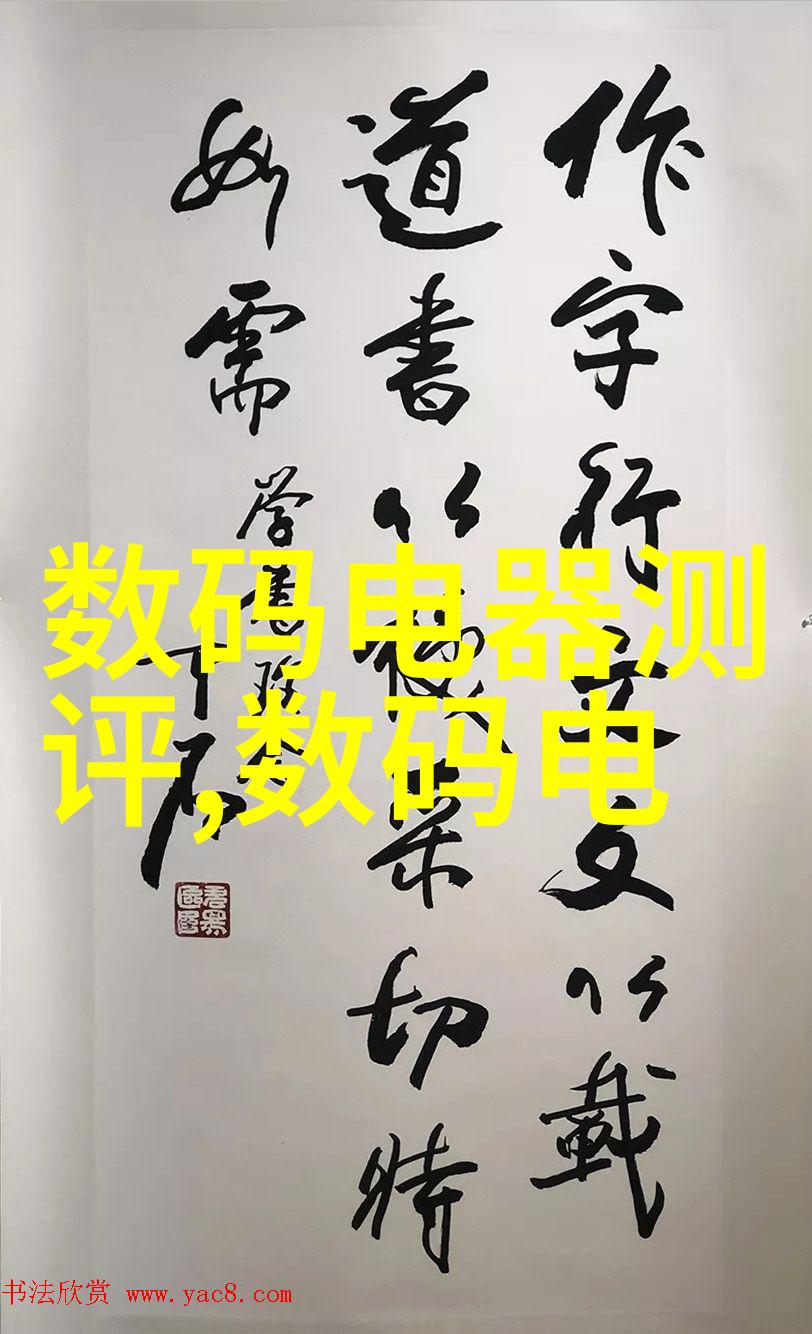 作字行文文以載
道書以采切時
如需
学書
数码电器测
评,数码电
书法欣赏 www.yac8.com